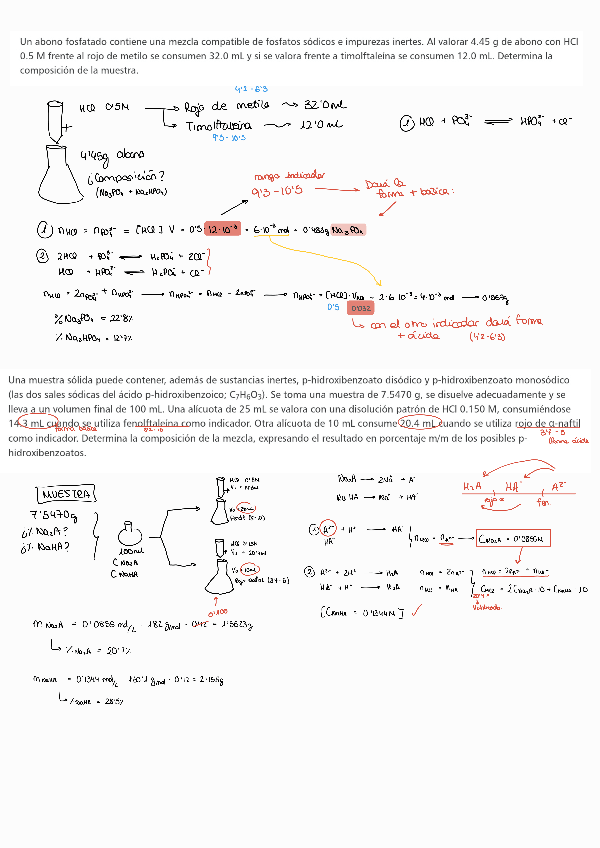 Un abono fosfatado contiene una mezcla compatible de fosfatos sódicos e impurezas inertes. Al valorar 4.45 g de abono con HCl
0.5 M frente al rojo de metilo se consumen 32.0 mL y si se valora frente a timolftaleina se consumen 12.0 mL. Determina la
composición de la muestra.
4'2 - 6'3
HCl 0'5M
Rojo de metilo 32'0 mL
Timolftaleina 12'0 mL
9'3 - 10'5
① HCl + PO₄³⁻ ⇌ HPO₄²⁻ + Cl⁻
4'45g abono
¿Composición?
(Na₃PO₄ + Na₂HPO₄)
rango indicador
9'3 - 10'5
Dará la
forma + básica:
① nHCl = nPO₄³⁻ = [HCl] · V = 0'5 · 12·10⁻³ = 6·10⁻³ mol = 0'983g Na₃PO₄
② 2HCl + PO₄³⁻ ⇌ H₂PO₄⁻ + 2Cl⁻
HCl + HPO₄²⁻ ⇌ H₂PO₄⁻ + Cl⁻
nHCl = 2nPO₄³⁻ + nHPO₄²⁻ → nHPO₄²⁻ = nHCl - 2nPO₄³⁻ → nHPO₄²⁻ = [HCl] · VHCl - 2·6·10⁻³ = 4·10⁻³ mol
0'5 0'032
% Na₃PO₄ = 22'8%
% Na₂HPO₄ = 12'7%
con el otro indicador dará forma
+ ácida (4'2-6'3)
Una muestra sólida puede contener, además de sustancias inertes, p-hidroxibenzoato disódico y p-hidroxibenzoato monosódico
(las dos sales sódicas del ácido p-hidroxibenzoico; C₇H₆O₃). Se toma una muestra de 7.5470 g, se disuelve adecuadamente y se
lleva a un volumen final de 100 mL. Una alícuota de 25 mL se valora con una disolución patrón de HCl 0.150 M, consumiéndose
14.3 mL cuando se utiliza fenolftaleina como indicador. Otra alícuota de 10 mL consume 20.4 mL cuando se utiliza rojo de α-naftil
forma básica 8'2-10
como indicador. Determina la composición de la mezcla, expresando el resultado en porcentaje m/m de los posibles p-
forma ácida
hidroxibenzoatos.
MUESTRA
7'5470g
¿% Na₂A?
¿% NaHA?
100 mL
C Na₂A
C NaHA
Na₂A → 2Na⁺ + A²⁻
NaHA → Na⁺ + HA⁻
H₂A HA⁻ A²⁻
rojo α fen.
① A²⁻ + H⁺ → HA⁻
nHCl = nA²⁻ → CNa₂A = 0'0858M
② A²⁻ + 2H⁺ → H₂A
HA⁻ + H⁺ → H₂A
[CNaHA = 0'1344M] ✓
m Na₂A = 0'0858 mol/L
→ % Na₂A = 20'7%
m NaHA = 0'1344 mol/L
→ % NaHA = 28'5%